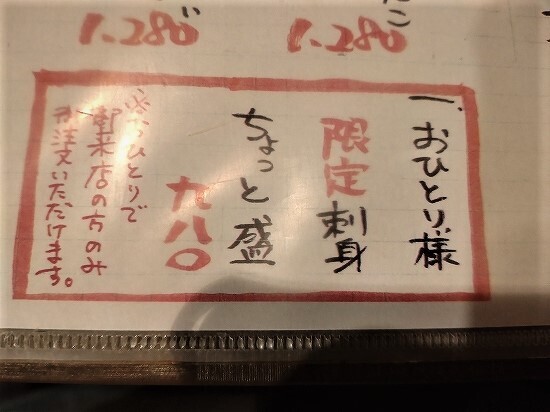 こ
1.280
い
1.280
一、おひとり様
限定刺身
ちょっと盛
九八〇
※おひとりで
御来店の方のみ
注文いただけます。